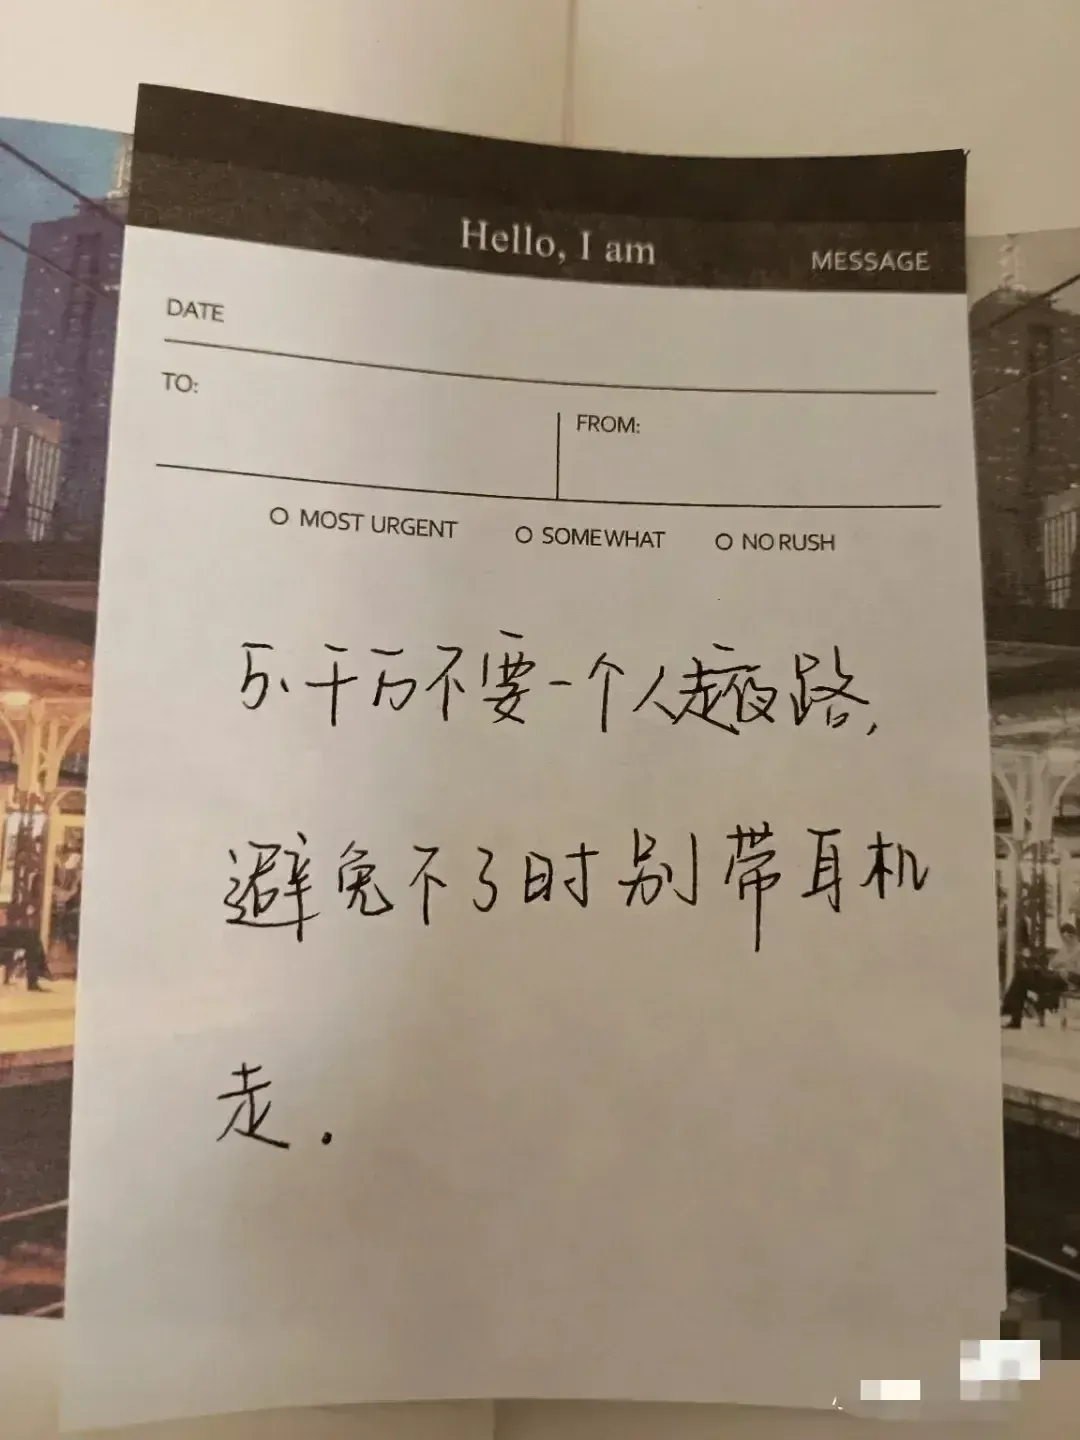 Hello, I am
MESSAGE
DATE
TO:
FROM:
O MOST URGENT O SOMEWHAT O NO RUSH
5、千万不要一个人走夜路,
避免不了时别带耳机
走.